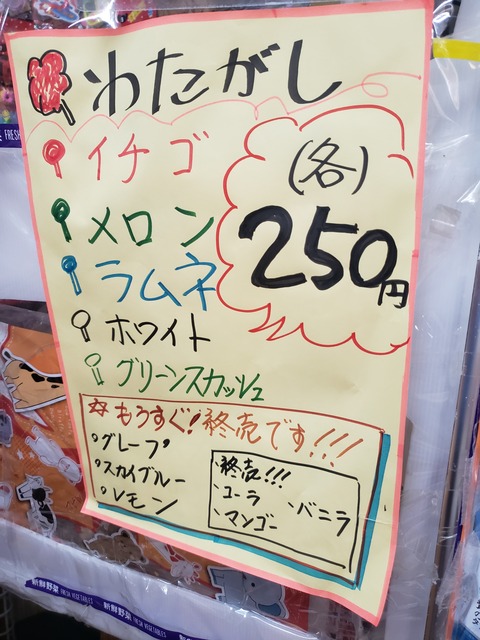 わたがし
イチゴ
メロン
ラムネ
ホワイト
グリーンスカッシュ
(各)
250円
もうすぐ!終売です!!!
グレープ
スカイブルー
レモン
終売!!!
コーラ
マンゴー
バニラ
新鮮野菜 FRESH VEGETABLES
新鮮野菜 FRESH VEGETABLES